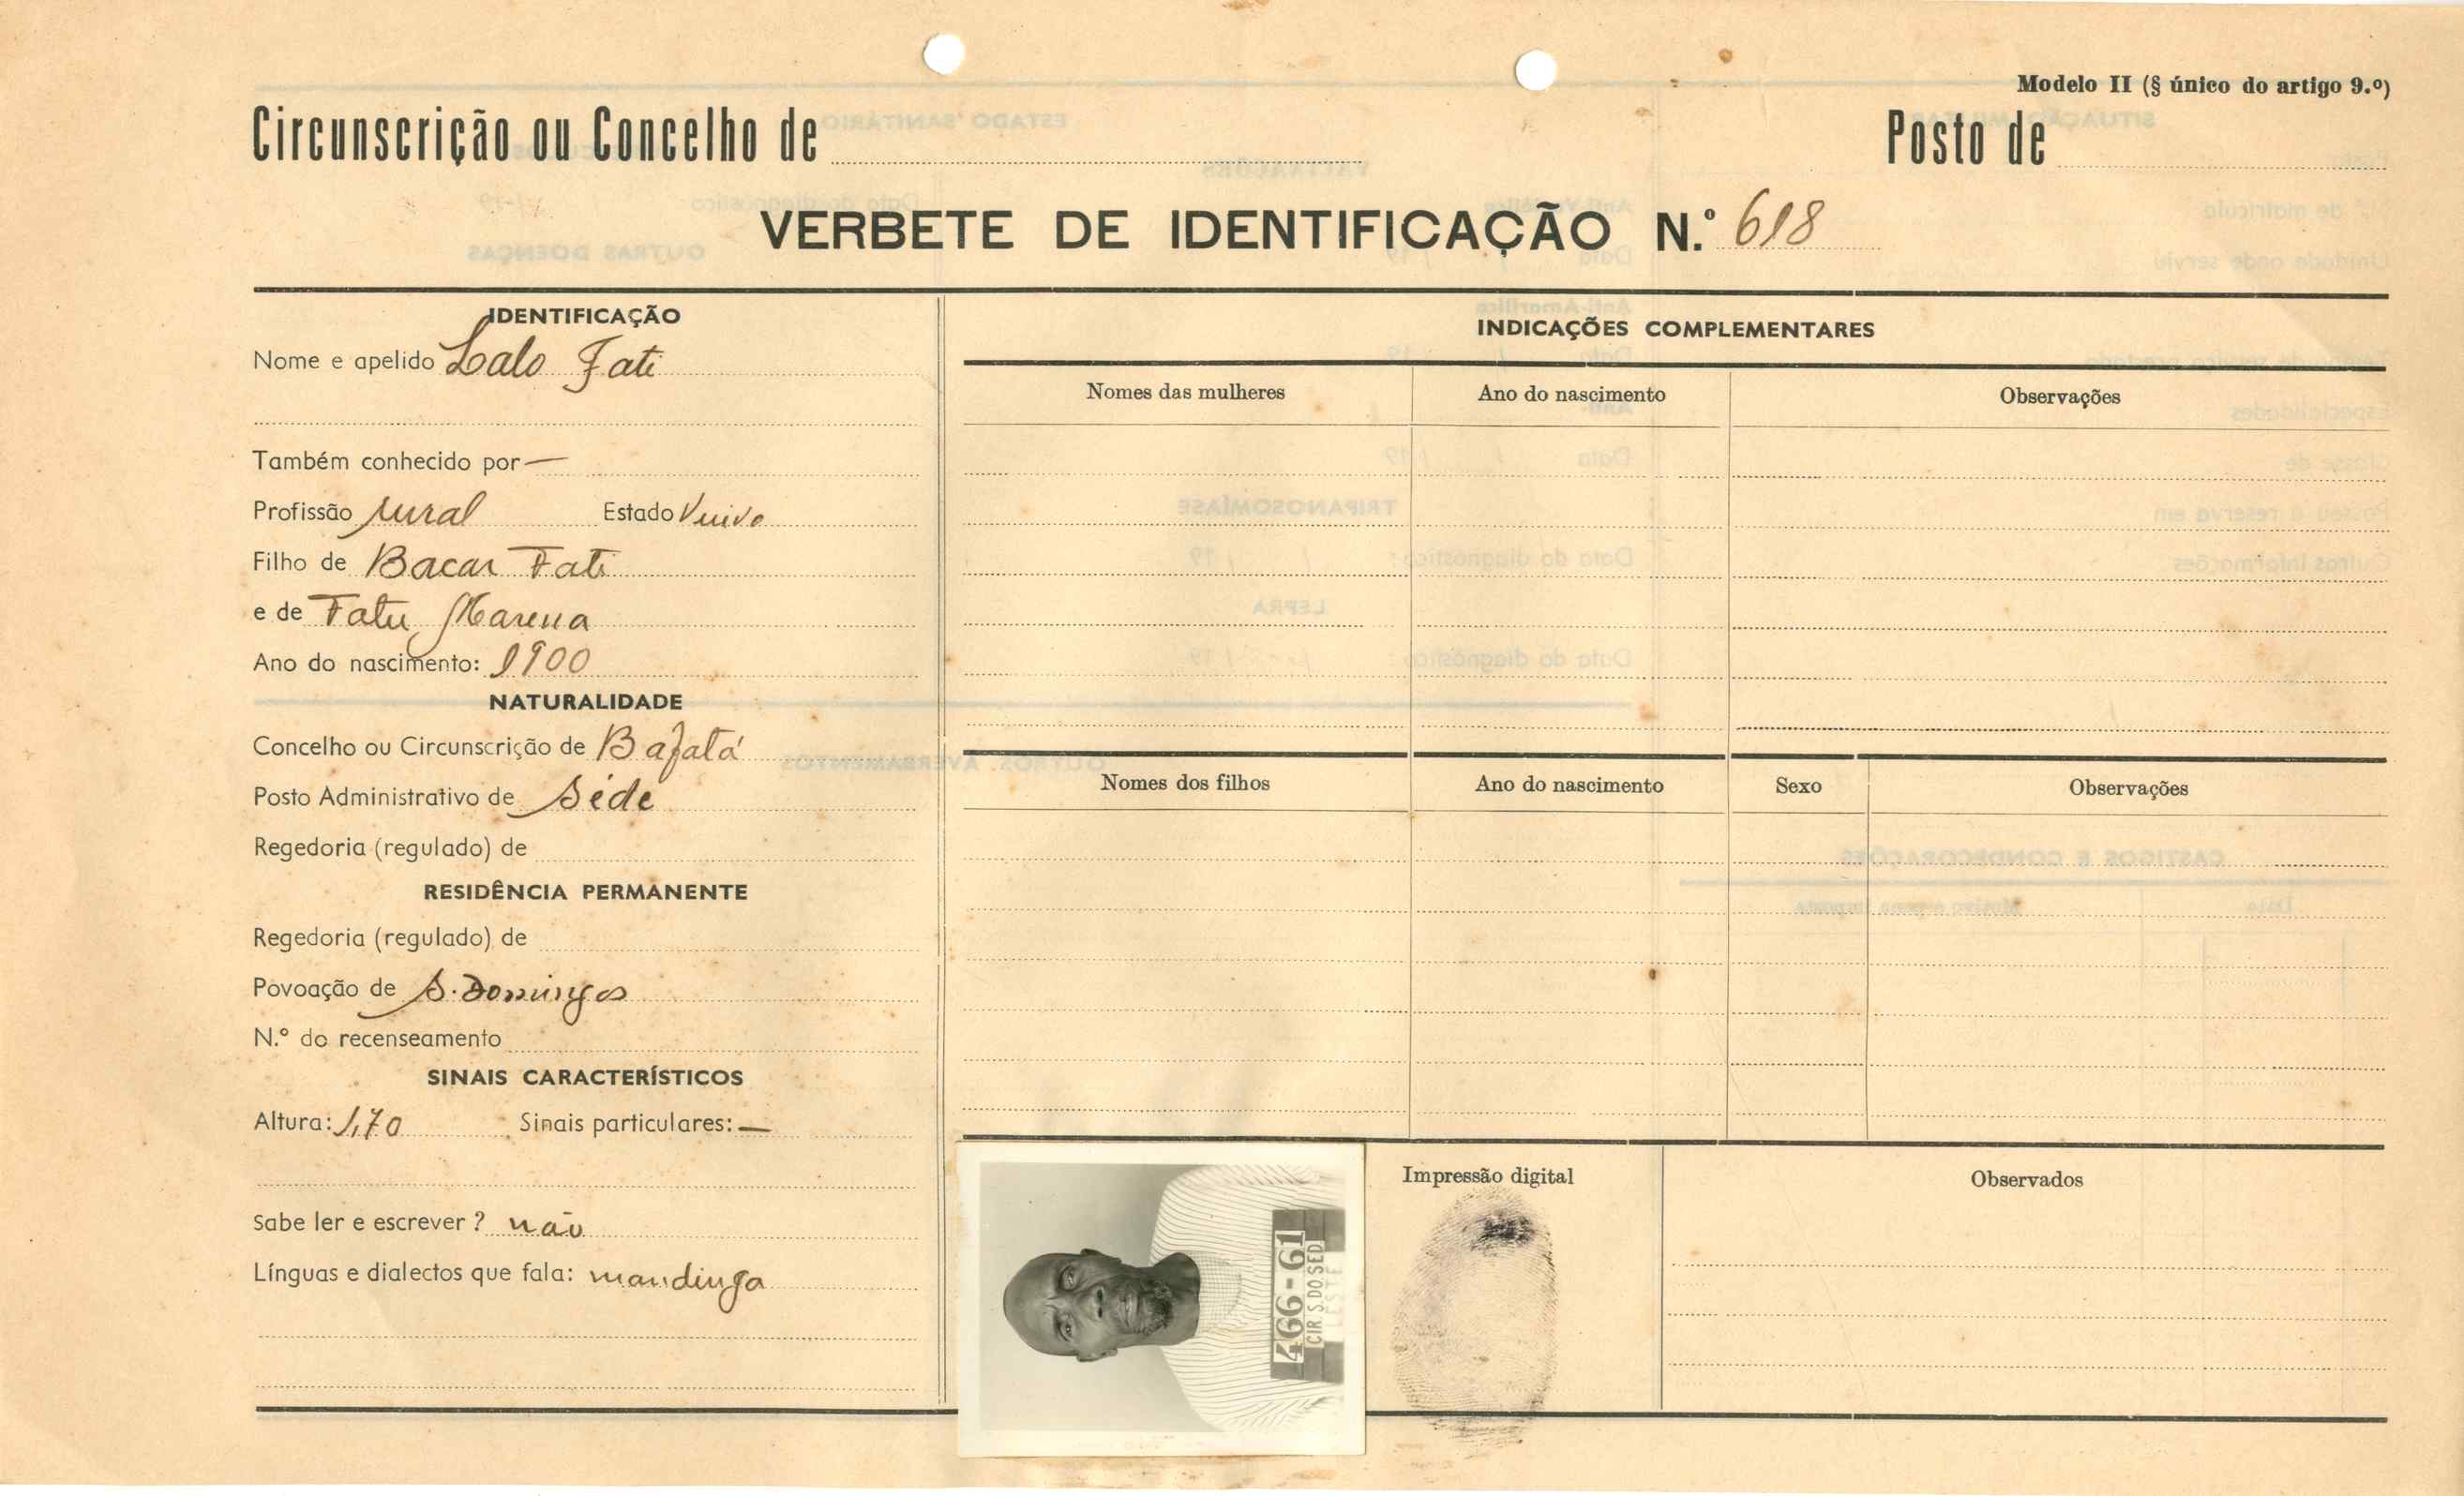 Modelo II (§ único do artigo 9.º)
Circunscrição ou Concelho de
Posto de
VERBETE DE IDENTIFICAÇÃO N.º 618
IDENTIFICAÇÃO
Nome e apelido Lalo Fati
Também conhecido por —
Profissão rural Estado Viuvo
Filho de Bacar Fati
e de Fatu Marena
Ano do nascimento: 1900
NATURALIDADE
Concelho ou Circunscrição de Bafatá
Posto Administrativo de Séde
Regedoria (regulado) de
RESIDÊNCIA PERMANENTE
Regedoria (regulado) de
Povoação de S. Domingos
N.º do recenseamento
SINAIS CARACTERÍSTICOS
Altura: 1,70 Sinais particulares: —
Sabe ler e escrever? não
Línguas e dialectos que fala: mandinga
INDICAÇÕES COMPLEMENTARES
Nomes das mulheres Ano do nascimento Observações
Nomes dos filhos Ano do nascimento Sexo Observações
466-61
CIR.S.DO SED
LESTE
Impressão digital
Observados